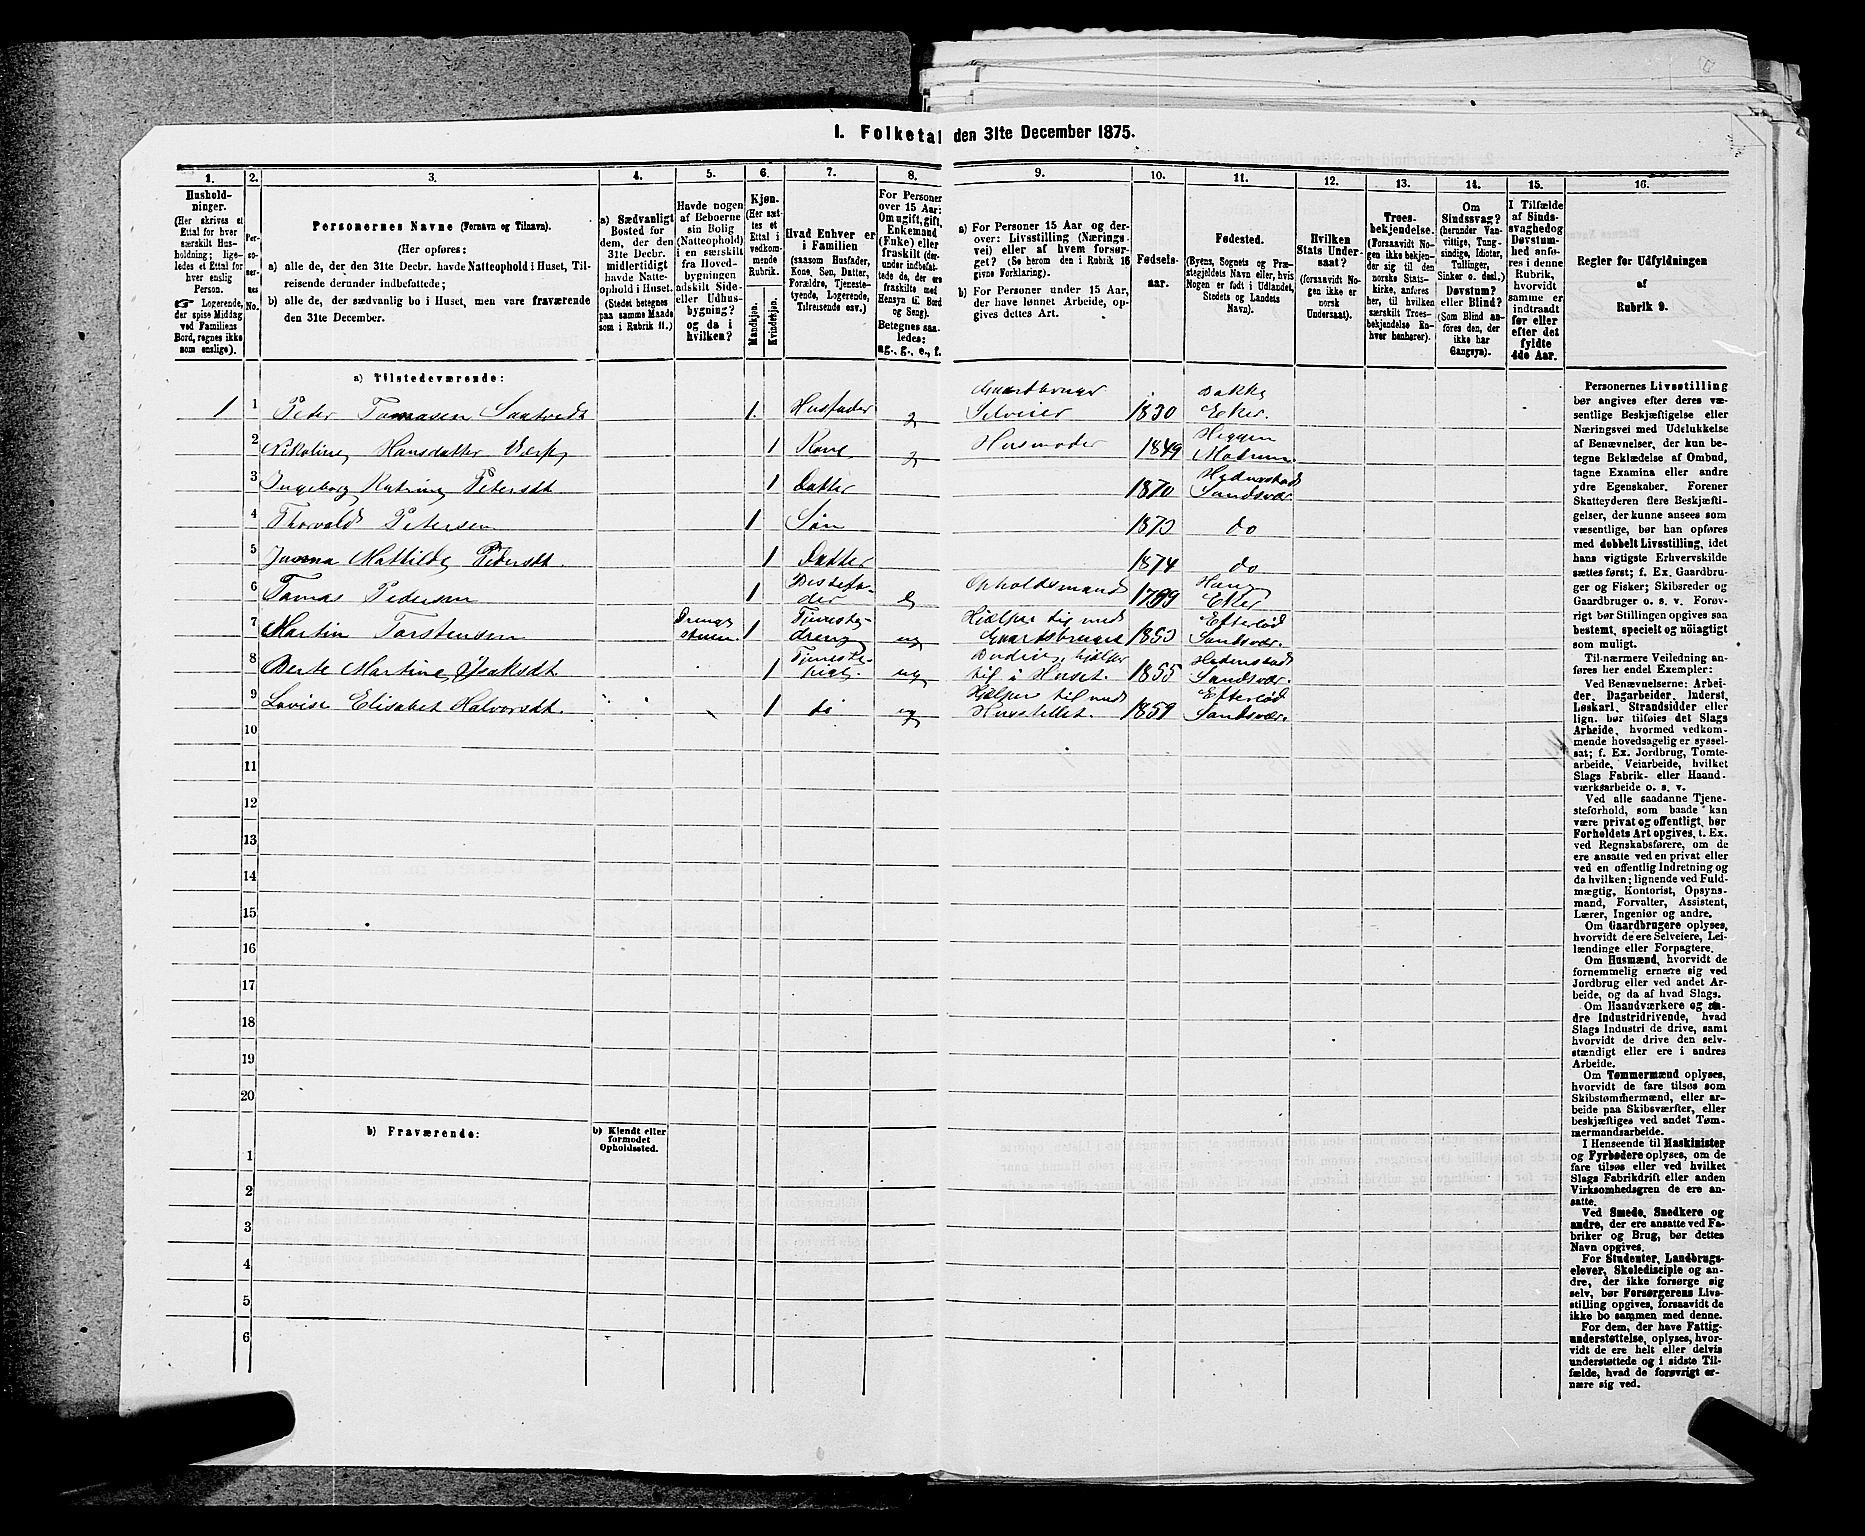 I. Folketal den 31te December 1875.
1. 2. 3. 4. 5. 6. 7. 8. 9. 10. 11. 12. 13. 14. 15. 16.
Hushold-
ninger.
(Her skrives et
Ettal for hver
særskilt Hus-
holdning; lige-
ledes et Ettal for
hver enslig
Person.
☞ Logerende,
der spise Middag
ved Familiens
Bord, regnes ikke
som enslige).
Per-
so-
ner-
nes
No.
Personernes Navne (Fornavn og Tilnavn).
(Her opføres:
a) alle de, der den 31te Decbr. havde Natteophold i Huset, Til-
reisende derunder indbefattede;
b) alle de, der sædvanlig bo i Huset, men vare fraværende
den 31te December.
a) Sædvanligt
Bosted for
dem, der den
31te Decbr.
midlertidigt
havde Natte-
ophold i Huset.
(Stedet betegnes
paa samme Maade
som i Rubrik 11.)
Havde nogen
af Beboerne
sin Bolig
(Natteophold)
i en særskilt
fra Hoved-
bygningen
adskilt Side-
eller Udhus-
bygning?
og da i
hvilken?
Kjøn.
(Her sæt-
tes et
Ettal i
vedkom-
mende
Rubrik.
Mandkjøn.
Kvindekjøn.
Hvad Enhver er
i Familien
(saasom Husfader,
Kone, Søn, Datter,
Forældre, Tjeneste-
tyende, Logerende,
Tilreisende osv.)
For Personer
over 15 Aar:
Om ugift, gift,
Enkemand
(Enke) eller
fraskilt (der-
under indbefat-
tede de, der ere
fraskilte med
Hensyn til Bord
og Seng).
Betegnes saa-
ledes:
ug., g., e., f.
a) For Personer 15 Aar og der-
over: Livsstilling (Nærings-
vei) eller af hvem forsør-
get? (Se herom den i Rubrik 16
givne Forklaring).
b) For Personer under 15 Aar,
der have lønnet Arbeide, op-
gives dettes Art.
Fødsels-
aar.
Fødested.
(Byens, Sognets og Præ-
stegjeldets Navn eller, hvis
Nogen er født i Udlandet,
Stedets og Landets
Navn).
Hvilken
Stats Under-
saat?
(forsaavidt No-
gen ikke er
norsk
Undersaat).
Troes-
bekjendelse.
(Forsaavidt No-
gen ikke bekjen-
der sig til den
norske Stats-
kirke, anføres
her, til hvilken
særskilt Troes-
bekjendelse En-
hver henhører).
Om
Sindssvag?
(herunder Van-
vittige, Tung-
sindige, Idioter,
Tullinger,
Sinker o. desl.)
Døvstum?
eller Blind?
(Som Blind an-
føres den, der
ikke har
Gangsyn).
I Tilfælde
af Sinds-
svaghed og
Døvstum-
hed anfø-
res i denne
Rubrik,
hvorvidt
samme er
indtraadt
før eller
efter det
fyldte
4de Aar.
Regler for Udfyldningen
af
Rubrik 9.
a) Tilstedeværende:
Gaardbruger Bakke
1 1 Peder Tomasen 1. Husfader g Selveier 1830 Eker.
Heggen
2 Nikoline Hansdatter 1 Kone g Husmoder 1849 Modum.
Hedenstad
3 Ingeborg Katrine Petersdt 1 Datter 1870 Sandsvær
4 Thorvald Petersen 1 Søn 1873 do
5 Mathilde Pedersdt. 1 Datter 1874 do
Haug
6 Tomas Pedersen 1 Bestefa-
der e Opholdsmand 1799 Eker
7 Martin Torstensen Drenge-
stuen. 1 Tjeneste-
dreng ug Hjælper til med
Gaardsbruget 1853 Eftelød
Sandsvær.
8 Berte Martine Isaksdt. 1 Tjeneste-
pige. ug Budeie, hjælper
til i Huset. 1855 Hedenstad
Sandsvær.
9 Lovise Elisabet Halvorsdt. 1 do ug Hjælper til med
Husstellet. 1859 Eftelød
Sandsvær.
10
11
12
13
14
15
16
17
18
19
20
b) Fraværende:
b) Kjendt eller
formodet
Opholdssted.
1
2
3
4
5
6
Personernes Livsstilling
bør angives efter deres væ-
sentlige Beskjæftigelse eller
Næringsvei med Udelukkelse
af Benævnelser, der kun be-
tegne Beklædelse af Ombud,
tagne Examina eller andre
ydre Egenskaber. Forener
Skatteyderen flere Beskjæfti-
gelser, der kunne ansees som
væsentlige, bør han opføres
med dobbelt Livsstilling, idet
hans vigtigste Erhvervskilde
sættes først; f. Ex. Gaardbru-
ger og Fisker; Skibsreder og
Gaardbruger o. s. v. Forøv-
rigt bør Stillingen opgives saa
bestemt, specielt og nøiagtigt
som muligt.
Til nærmere Veiledning an-
føres her endel Exempler:
Ved Benævnelserne: Arbei-
der, Dagarbeider, Inderst,
Løskarl, Strandsidder eller
lign. bør tilføies det Slags
Arbeide, hvormed vedkom-
mende hovedsagelig er syssel-
sat; f. Ex. Jordbrug, Tomte-
arbeide, Veiarbeide, hvilket
Slags Fabrik- eller Haand-
værksarbeide o. s. v.
Ved alle saadanne Tjene-
steforhold, som baade kan
være privat og offentligt, bør
Forholdets Art opgives, t. Ex.
ved Regnskabsførere, om de
ere ansatte ved en privat eller
ved en offentlig Indretning og
da hvilken; lignende ved Fuld-
mægtig, Kontorist, Opsyns-
mand, Forvalter, Assistent,
Lærer, Ingeniør og andre.
Om Gaardbrugere oplyses,
hvorvidt de ere Selveiere, Lei-
lændinge eller Forpagtere.
Om Husmænd, hvorvidt de
fornemmelig ernære sig ved
Jordbrug eller ved andet Ar-
beide, og da af hvad Slags.
Om Haandværkere og an-
dre Industridrivende, hvad
Slags Industri de drive, samt
hvorvidt de drive den selv-
stændigt eller ere i andres
Arbeide.
Om Tømmermænd oplyses,
hvorvidt de fare tilsøs som
Skibstømmermænd, eller ar-
beide paa Skibsværfter, eller
beskjæftiges ved andet Tøm-
mermandsarbeide.
I Henseende til Maskinister
og Fyrbødere oplyses, om de
fare tilsøs eller ved hvilket
Slags Fabrikdrift eller anden
Virksomhedsgren de ere an-
satte.
Ved Smede, Snedkere og
andre, der ere ansatte ved Fa-
briker og Brug, bør dettes
Navn opgives.
For Studenter, Landbrugs-
elever, Skoledisciple og an-
dre, der ikke forsørge sig
selv, bør Forsørgerens Livs-
stilling opgives, forsaavidt de
ikke bo sammen med denne.
For dem, der have Fattig-
understøttelse, oplyses, hvor-
vidt de ere helt eller delvis
understøttede og i sidste Til-
fælde, hvad de forøvrigt er-
nære sig ved.